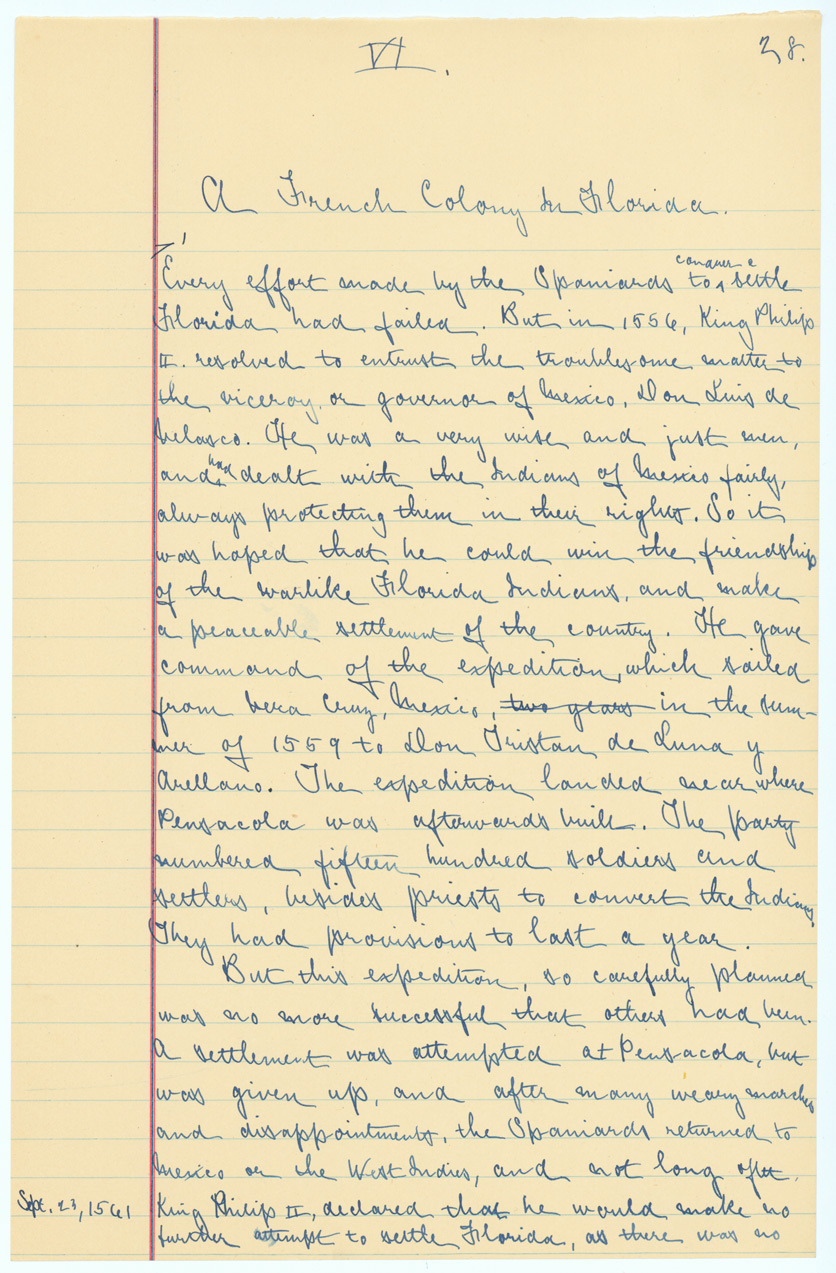 VI.
28.
A French Colony In Florida.
Every effort made by the Spaniards to conquer & settle
Florida had failed. But in 1556, King Philip
II. resolved to entrust the troublesome matter to
the viceroy, or governor of Mexico, Don Luis de
Velasco. He was a very wise and just men,
and had dealt with the Indians of Mexico fairly,
always protecting them in their rights. So it
was hoped that he could win the friendship
of the warlike Florida Indians, and make
a peaceable settlement of the country. He gave
command of the expedition, which sailed
from Vera Cruz, Mexico, two years in the sum-
mer of 1559 to Don Tristan de Luna y
Arellano. The expedition landed near where
Pensacola was afterwards built. The party
numbered fifteen hundred soldiers and
settlers, besides priests to convert the Indians.
They had provisions to last a year.
But this expedition, so carefully planned
was no more successful that others had been.
A settlement was attempted at Pensacola, but
was given up, and after many weary marches
and disappointments, the Spaniards returned to
Mexico or the West Indies, and not long after
Sept. 23, 1561 King Philip II, declared that he would make no
further attempt to settle Florida, as there was no